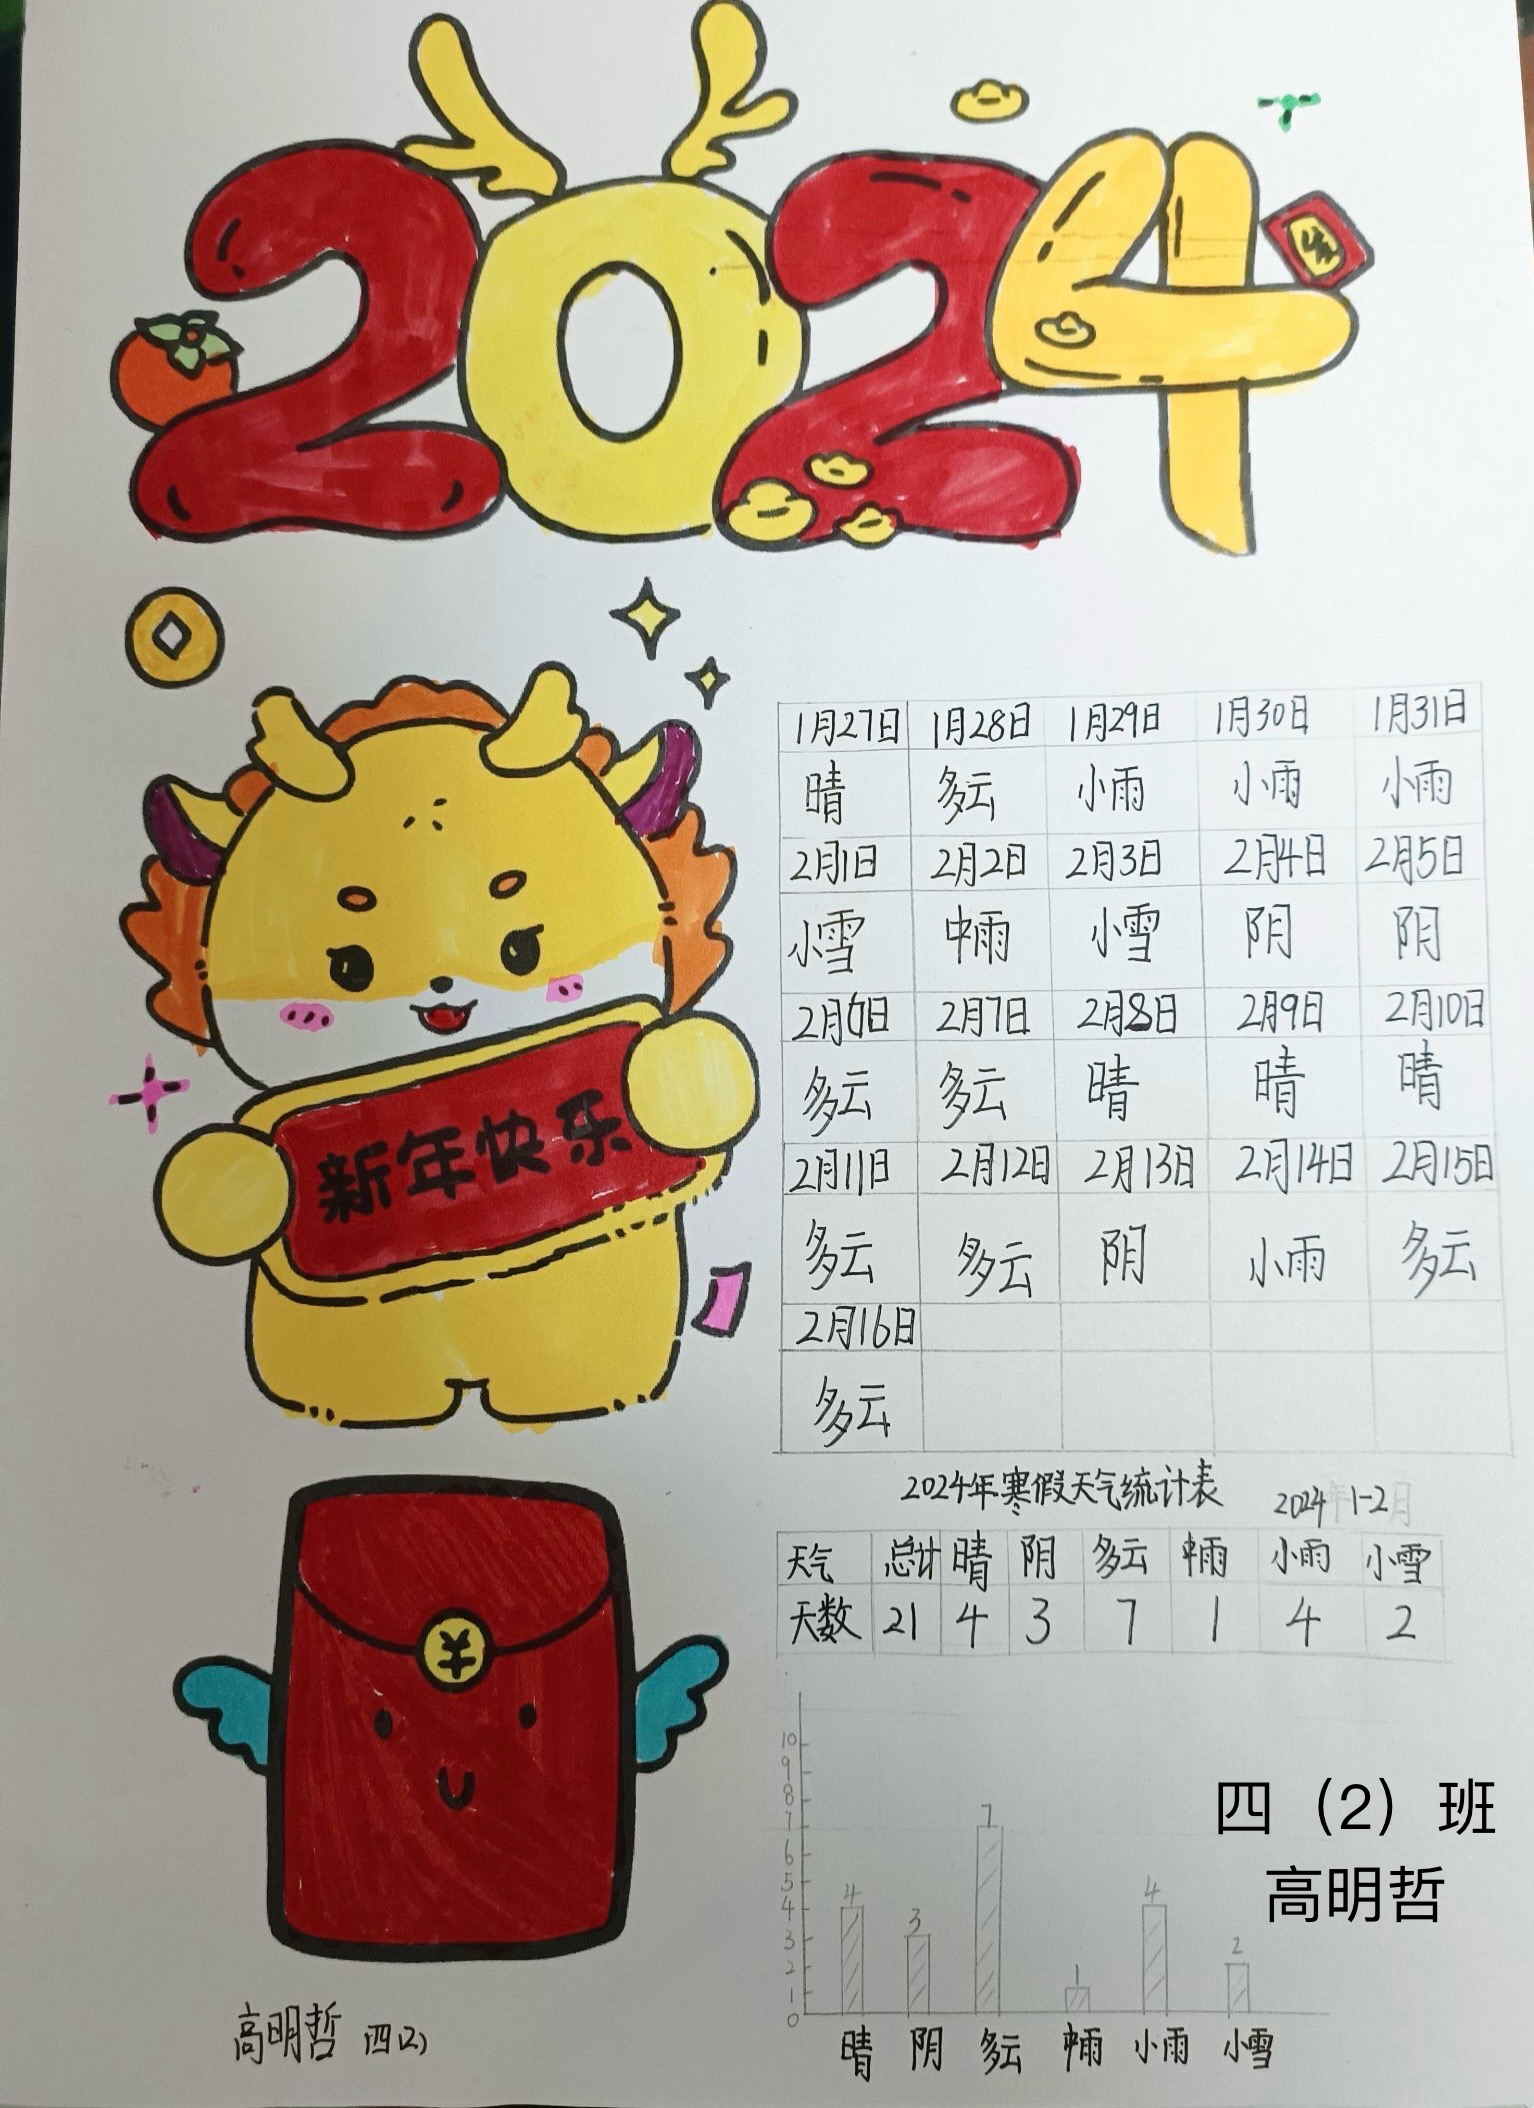 2024
新年快乐
¥
1月27日 1月28日 1月29日 1月30日 1月31日
晴 多云 小雨 小雨 小雨
2月1日 2月2日 2月3日 2月4日 2月5日
小雪 中雨 小雪 阴 阴
2月6日 2月7日 2月8日 2月9日 2月10日
多云 多云 晴 晴 晴
2月11日 2月12日 2月13日 2月14日 2月15日
多云 多云 阴 小雨 多云
2月16日
多云
2024年寒假天气统计表 2024年1-2月
天气 总计 晴 阴 多云 中雨 小雨 小雪
天数 21 4 3 7 1 4 2
10
9
8
7 7
6
5
4 4 4
3 3
2 2
1 1
0
晴 阴 多云 中雨 小雨 小雪
四（2）班
高明哲
高明哲 四(2)